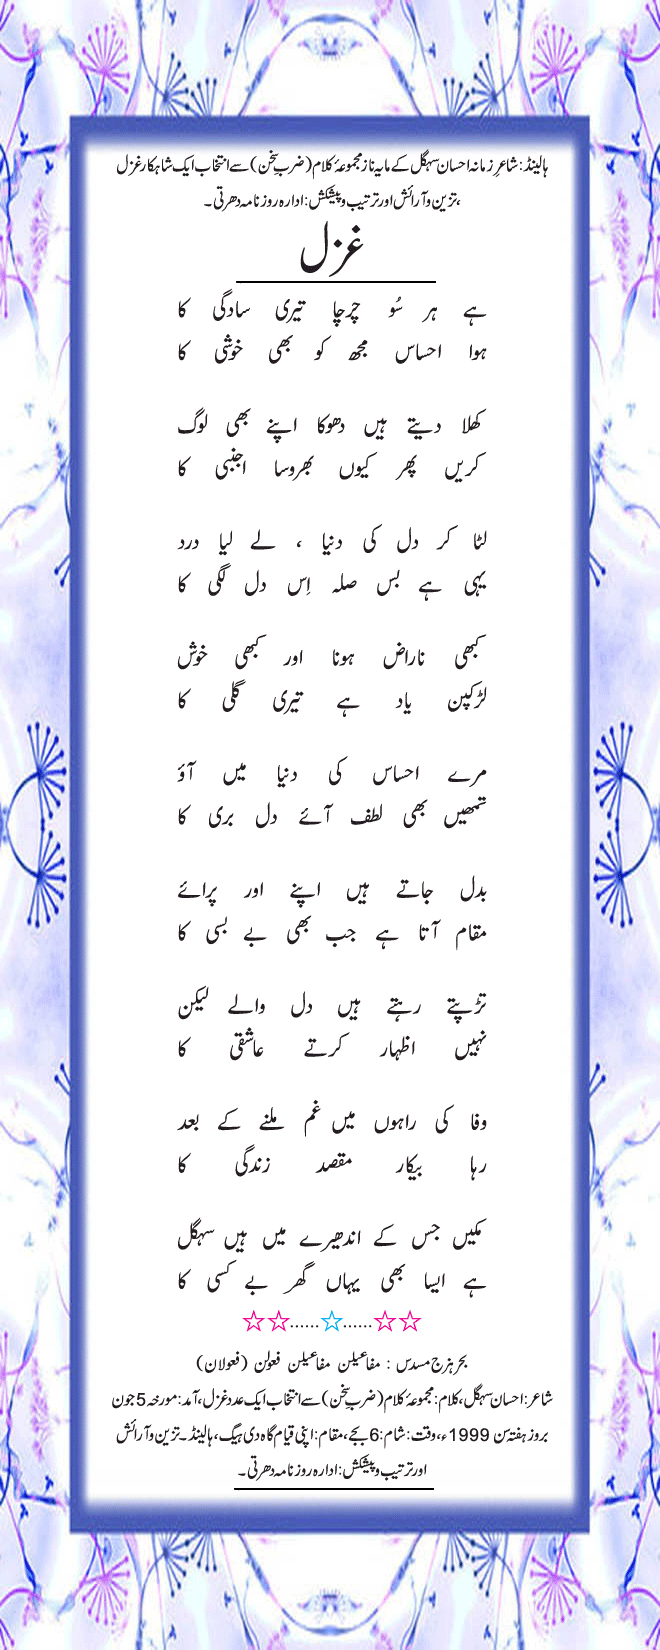 ہالینڈ: شاعرِ زمانہ احسان سہگل کے مایہ ناز مجموعۂ کلام (ضربِ سخن) سے انتخاب ایک شاہکار غزل
،تزین و آرائش اور ترتیب و پیشکش: ادارہ روزنامہ دھرتی۔
غزل
ہے ہر سُو چرچا تیری سادگی کا
ہوا احساس مجھ کو بھی خوشی کا
کھلا دیتے ہیں دھوکا اپنے بھی لوگ
کریں پھر کیوں بھروسا اجنبی کا
لٹا کر دل کی دنیا ، لے لیا درد
یہی ہے بس صلہ اِس دل لگی کا
کبھی ناراض ہونا اور کبھی خوش
لڑکپن یاد ہے تیری گلی کا
مرے احساس کی دنیا میں آؤ
تمھیں بھی لطف آئے دل بری کا
بدل جاتے ہیں اپنے اور پرائے
مقام آتا ہے جب بھی بے بسی کا
تڑپتے رہتے ہیں دل والے لیکن
نہیں اظہار کرتے عاشقی کا
وفا کی راہوں میں غم ملنے کے بعد
رہا بیکار مقصد زندگی کا
مکیں جس کے اندھیرے میں ہیں سہگل
ہے ایسا بھی یہاں گھر بے کسی کا
☆☆......☆......☆☆
بحر ہزج مسدس : مفاعیلن مفاعیلن فعولن (فعولان)
شاعر: احسان سہگل، کلام: مجموعۂ کلام (ضربِ سخن) سے انتخاب ایک عدد غزل، آمد: مورخہ 5 جون
بروز ہفتہ سن 1999ء، وقت: شام: 6 بجے، مقام: اپنی قیام گاہ دی ہیگ، ہالینڈ۔ تزین و آرائش
اور ترتیب و پیشکش: ادارہ روزنامہ دھرتی۔